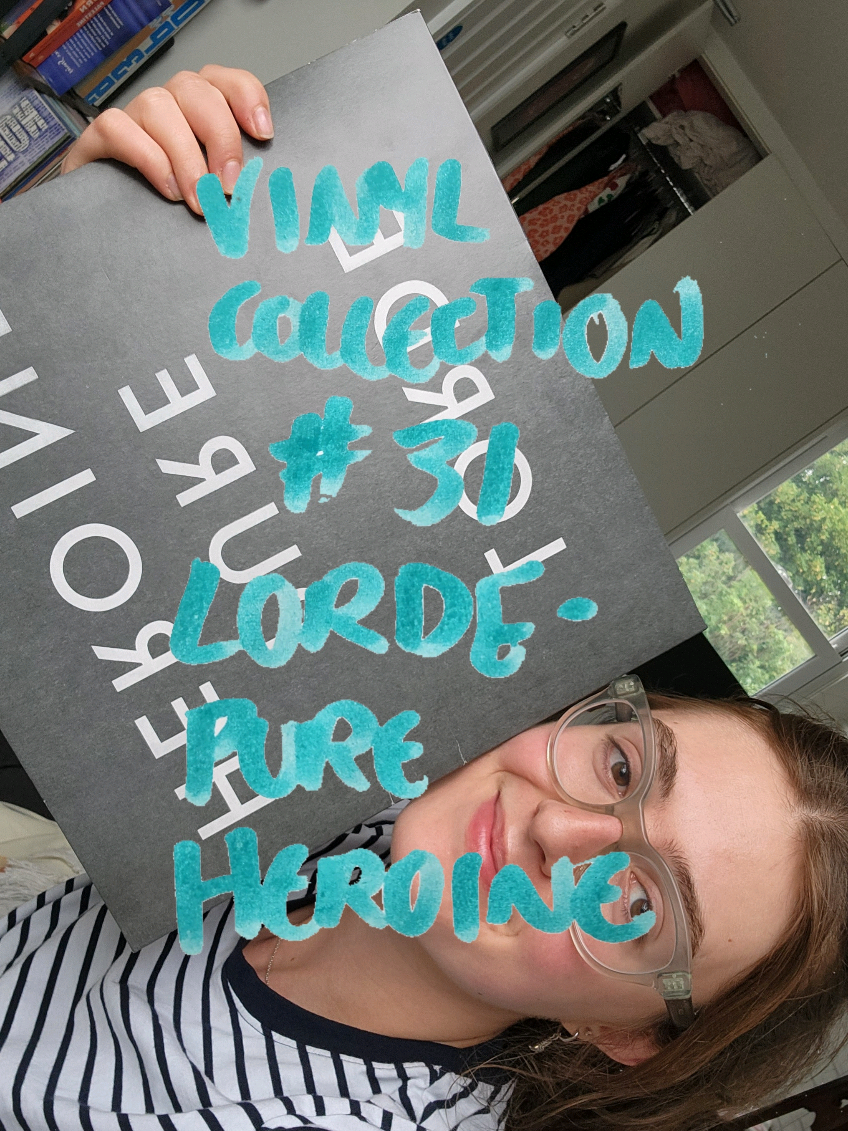 VINYL
COLLECTION
# 31
LORDE -
PURE
HEROINE
LORDE
PURE
HEROINE